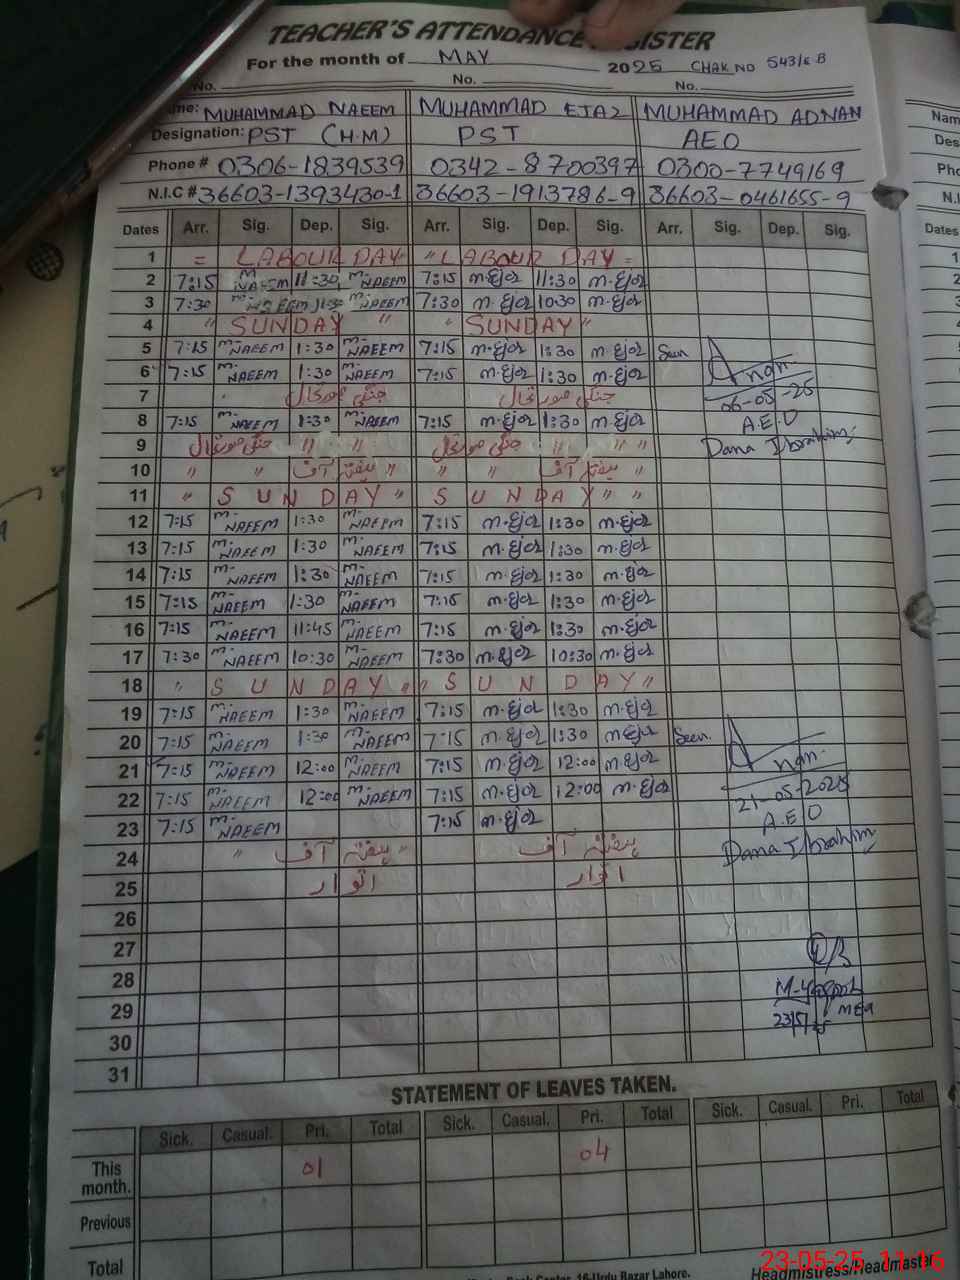 TEACHER'S ATTENDANCE REGISTER
For the month of MAY 2025 CHAK NO 543/EB
No. No. No.
Name: MUHAMMAD NAEEM MUHAMMAD EJAZ MUHAMMAD ADNAN
Designation: PST (H.M) PST AEO
Phone # 0306-1839539 0342-8700397 0300-7749169
N.I.C # 36603-1393430-1 36603-1913786-9 36603-0461655-9
Dates Arr. Sig. Dep. Sig. Arr. Sig. Dep. Sig. Arr. Sig. Dep. Sig.
1 = LABOUR DAY " " LABOUR DAY =
2 7:15 M-NAEEM 11:30 M-NAEEM 7:15 m.Ejaz 11:30 m.Ejaz
3 7:30 M-NAEEM 11:30 M-NAEEM 7:30 m.Ejaz 10:30 m.Ejaz
4 " SUNDAY " " SUNDAY "
5 7:15 M-NAEEM 1:30 M-NAEEM 7:15 m.Ejaz 1:30 m.Ejaz Seen
6 7:15 M-NAEEM 1:30 M-NAEEM 7:15 m.Ejaz 1:30 m.Ejaz Adnan
7 جنگی صورتحال جنگی صورتحال 06-05-25
8 7:15 M-NAEEM 1:30 M-NAEEM 7:15 m.Ejaz 1:30 m.Ejaz A.E.O
9 جنگی صورتحال " " " جنگی صورتحال " " " Dana Ibrahim
10 " " ہفتہ آف " " " ہفتہ آف "
11 " SUNDAY " SUNDAY " "
12 7:15 M-NAEEM 1:30 M-NAEEM 7:15 m.Ejaz 1:30 m.Ejaz
13 7:15 M-NAEEM 1:30 M-NAEEM 7:15 m.Ejaz 1:30 m.Ejaz
14 7:15 M-NAEEM 1:30 M-NAEEM 7:15 m.Ejaz 1:30 m.Ejaz
15 7:15 M-NAEEM 1:30 M-NAEEM 7:15 m.Ejaz 1:30 m.Ejaz
16 7:15 M-NAEEM 11:45 M-NAEEM 7:15 m.Ejaz 1:30 m.Ejaz
17 7:30 M-NAEEM 10:30 M-NAEEM 7:30 m.Ejaz 10:30 m.Ejaz
18 " SUNDAY " " SUNDAY "
19 7:15 M-NAEEM 1:30 M-NAEEM 7:15 m.Ejaz 1:30 m.Ejaz
20 7:15 M-NAEEM 1:30 M-NAEEM 7:15 m.Ejaz 1:30 m.Ejaz Seen.
21 7:15 M-NAEEM 12:00 M-NAEEM 7:15 m.Ejaz 12:00 m.Ejaz Adnan
22 7:15 M-NAEEM 12:00 M-NAEEM 7:15 m.Ejaz 12:00 m.Ejaz 21-05-2025
23 7:15 M-NAEEM 7:15 m.Ejaz A.E.O
24 " ہفتہ آف " ہفتہ آف Dana Ibrahim
25 اتوار اتوار
26
27
28
29 MEA
23/5/25
30
31
STATEMENT OF LEAVES TAKEN.
Sick. Casual. Pri. Total Sick. Casual. Pri. Total Sick. Casual. Pri. Total
This month. 01 04
Previous
Total
23-05-25 11:16
16-Urdu Bazar Lahore. Headmistress/Headmaster